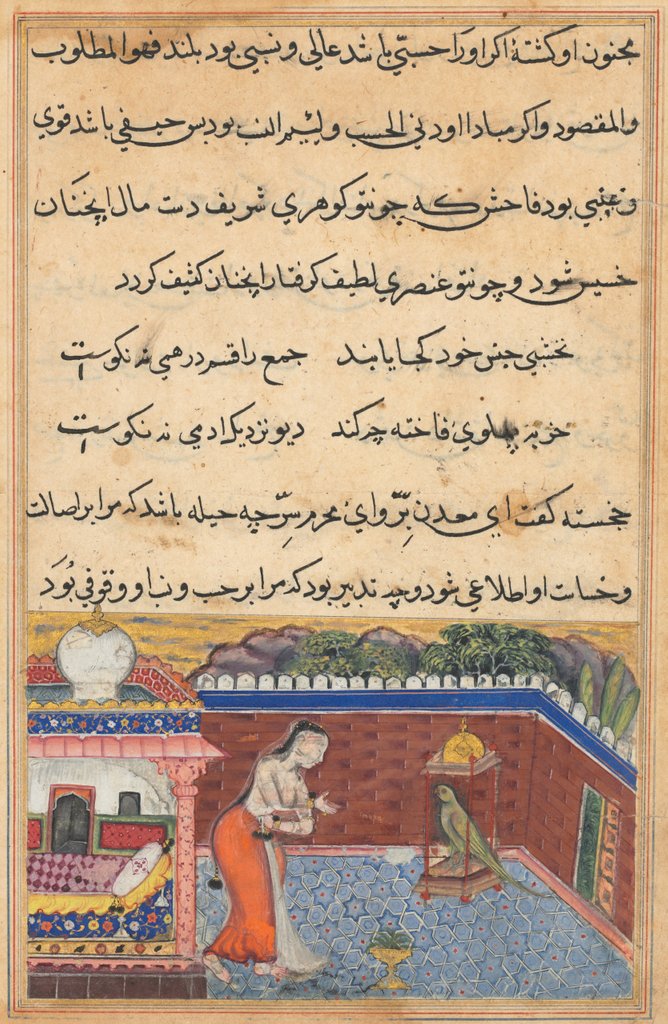 مجنون او کشتهٔ اکر او را حسبّي باشد عالي و نسبي بود بلند فهو المطلوب
والمقصود و اکر مبادا او دني الحسب و لئیم النسب بود بس حیفي باشد قوي
و غبني بود فاحش که جو نتو کوهري شریف دست مال انچنان
خسیس شود و جو نتو عنصري لطیف کرفتار انچنان کثیف کردد
نخشبي جنس خود کجا یابند جمع را قسم درهمي نه نکوست
خر به پهلوي فاخته چه کند دیو نزدیک ادمي نه نکوست
خجسته کفت اي معدن برّ و ايْ محرم سرّ چه حیله باشد که مرا بر اصالت
و خساست او اطلاعي شود و چه تدبیر بود که مرا بر حسب و نسب او وقوفي بُوَد